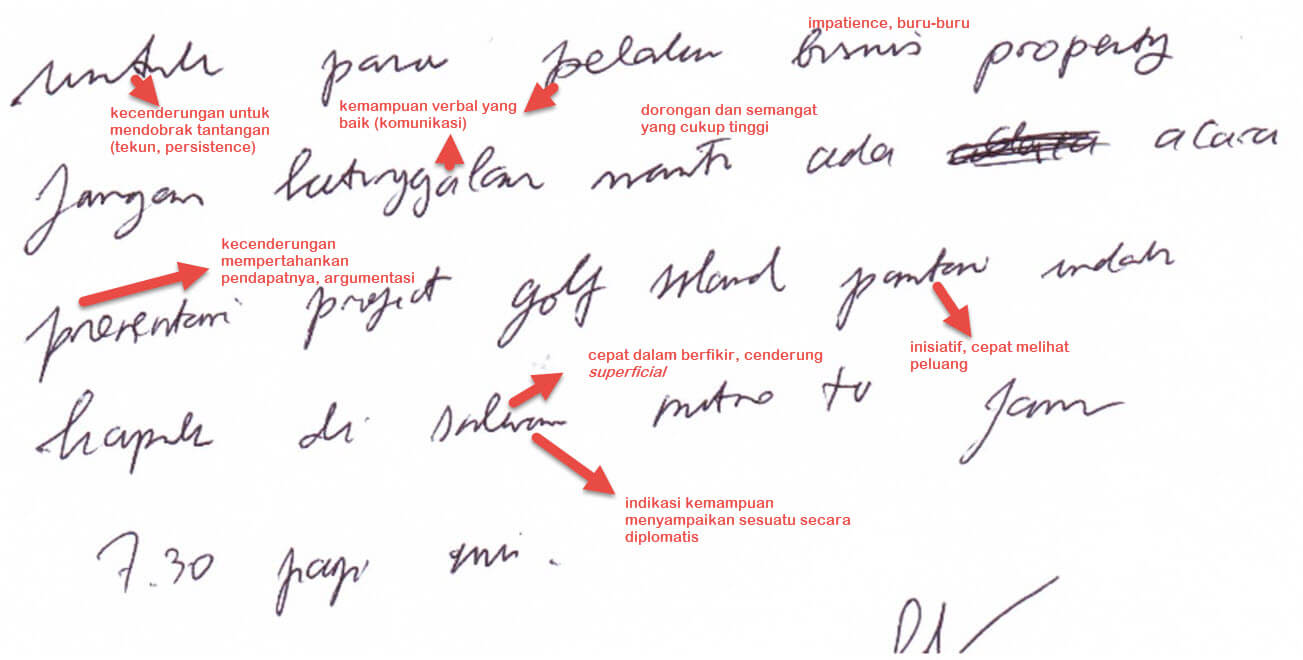 impatience, buru-buru
untuk para pelaku bisnis property
kecenderungan untuk
mendobrak tantangan
(tekun, persistence)
kemampuan verbal yang
baik (komunikasi)
dorongan dan semangat
yang cukup tinggi
Jangan ketinggalan nanti ada acara
kecenderungan
mempertahankan
pendapatnya, argumentasi
presentasi project golf island pantai indah
inisiatif, cepat melihat
peluang
cepat dalam berfikir, cenderung
superficial
kapuk di saluran metro tv Jam
indikasi kemampuan
menyampaikan sesuatu secara
diplomatis
7.30 pagi ini.